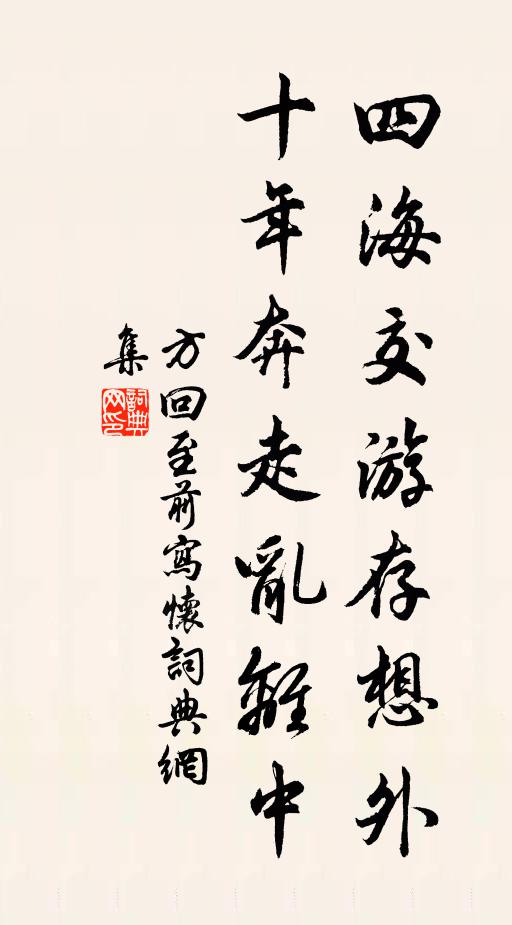 四海交游存想外
十年奔走亂離中
方回至前寫懷詞典網
集
詞典
网印